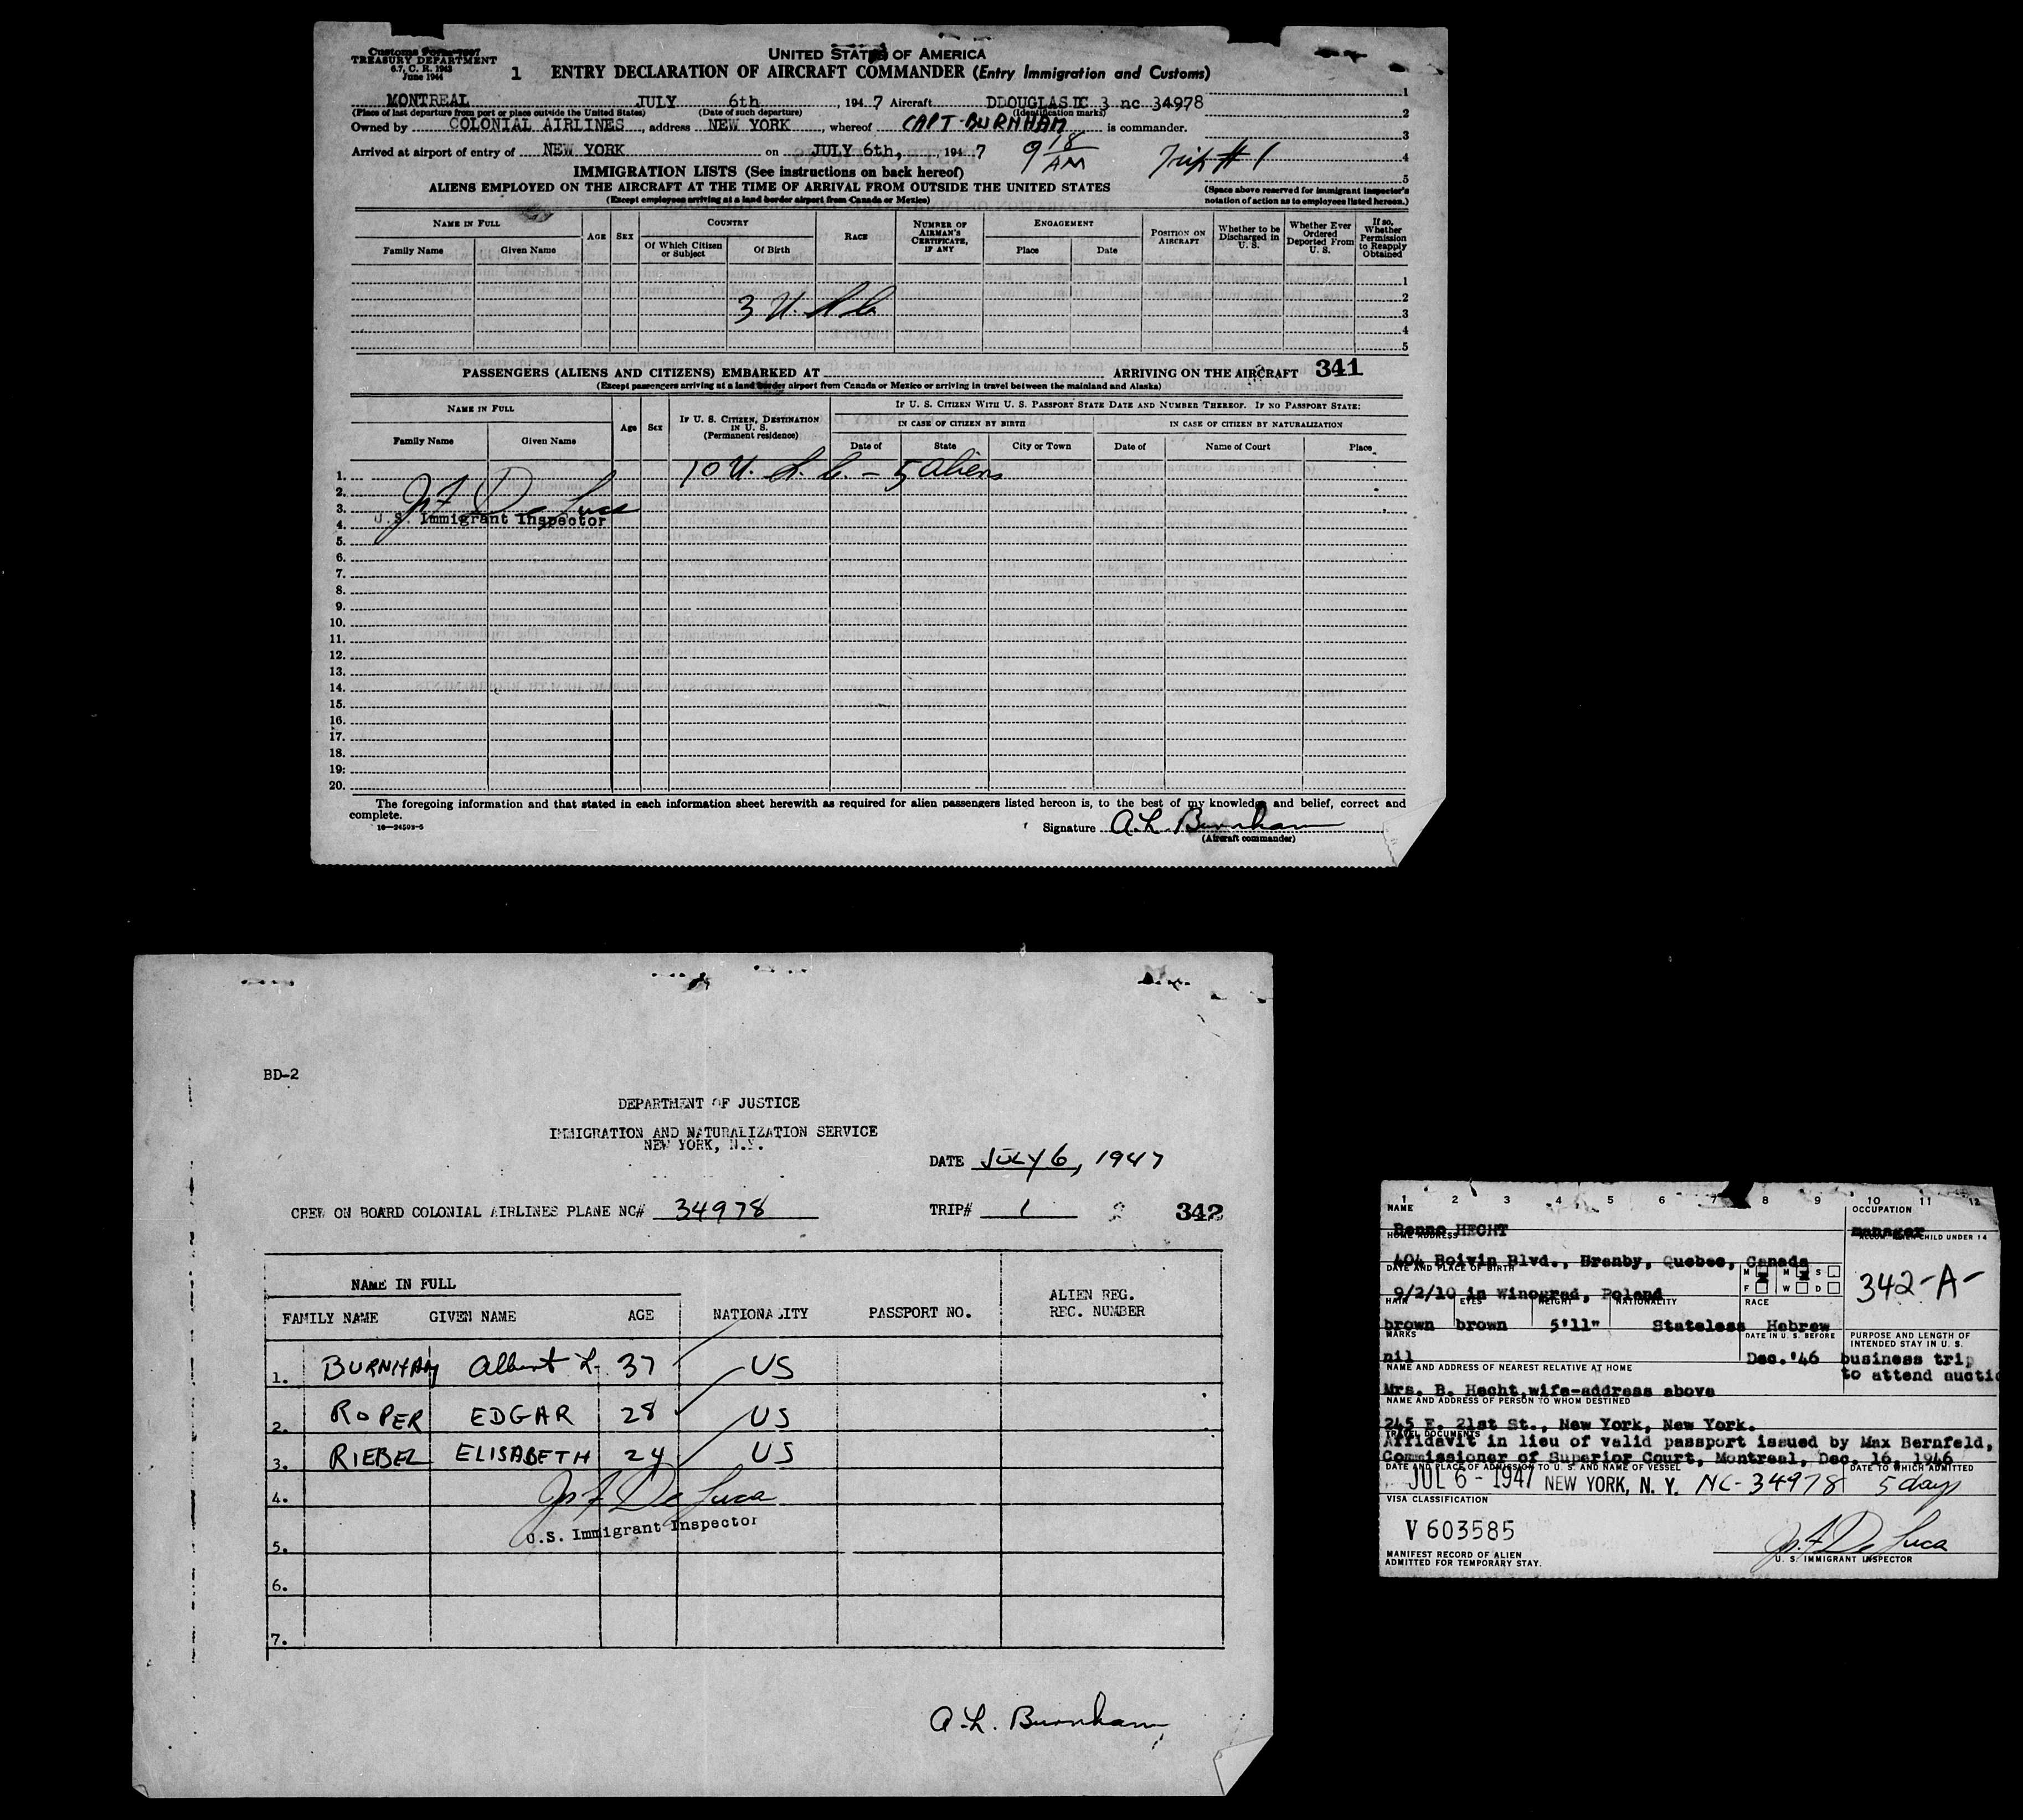 Customs Form 7507
TREASURY DEPARTMENT
6.7, C. R. 1943
June 1944
UNITED STATES OF AMERICA
1 ENTRY DECLARATION OF AIRCRAFT COMMANDER (Entry Immigration and Customs)
MONTREAL JULY 6th, 1947 Aircraft DDOUGLAS DC 3 nc 34978
(Place of last departure from port or place outside the United States) (Date of such departure) (Identification marks)
Owned by COLONIAL AIRLINES, address NEW YORK, whereof CAPT. BURNHAM is commander.
Arrived at airport of entry of NEW YORK on JULY 6th, 1947 9 18 AM Trip # 1
1
2
3
4
5
IMMIGRATION LISTS (See instructions on back hereof)
ALIENS EMPLOYED ON THE AIRCRAFT AT THE TIME OF ARRIVAL FROM OUTSIDE THE UNITED STATES
(Except employees arriving at a land border airport from Canada or Mexico)
(Space above reserved for immigrant inspector's
notation of action as to employees listed hereon.)
NAME IN FULL
Family Name Given Name
AGE SEX
COUNTRY
Of Which Citizen or Subject Of Birth
RACE
NUMBER OF AIRMAN'S CERTIFICATE, IF ANY
ENGAGEMENT
Place Date
POSITION ON AIRCRAFT
Whether to be Discharged in U. S.
Whether Ever Ordered Deported From U. S.
If so, Whether Permission to Reapply Obtained
1
2
3 U. S. C.
3
4
5
PASSENGERS (ALIENS AND CITIZENS) EMBARKED AT ARRIVING ON THE AIRCRAFT 341
(Except passengers arriving at a land border airport from Canada or Mexico or arriving in travel between the mainland and Alaska)
NAME IN FULL
Family Name Given Name
Age Sex
IF U. S. CITIZEN, DESTINATION IN U. S.
(Permanent residence)
IF U. S. CITIZEN WITH U. S. PASSPORT STATE DATE AND NUMBER THEREOF. IF NO PASSPORT STATE:
IN CASE OF CITIZEN BY BIRTH IN CASE OF CITIZEN BY NATURALIZATION
Date of State City or Town Date of Name of Court Place
10 U. S. C. - 5 aliens
1.
2.
3. De Luca
4. U.S. Immigrant Inspector
5.
6.
7.
8.
9.
10.
11.
12.
13.
14.
15.
16.
17.
18.
19.
20.
The foregoing information and that stated in each information sheet herewith as required for alien passengers listed hereon is, to the best of my knowledge and belief, correct and
complete.
16—24509-5
Signature A. L. Burnham
(Aircraft commander)
BD-2
DEPARTMENT OF JUSTICE
IMMIGRATION AND NATURALIZATION SERVICE
NEW YORK, N.Y.
DATE JULY 6, 1947
CREW ON BOARD COLONIAL AIRLINES PLANE NC# 34978 TRIP# 1 342
NAME IN FULL
FAMILY NAME GIVEN NAME AGE NATIONALITY PASSPORT NO. ALIEN REG. REC. NUMBER
1. BURNHAM Albert L. 37 US
2. ROPER EDGAR 28 US
3. RIEBEL ELISABETH 24 US
4. De Luca
U.S. Immigrant Inspector
5.
6.
7.
A. L. Burnham
1 2 3 4 5 6 7 8 9 10 11 12
NAME OCCUPATION
Benno HECHT manager
HOME ADDRESS CHILD UNDER 14
404 Boivin Blvd., Hranby, Quebec, Canada
DATE AND PLACE OF BIRTH M M S
F W D
342-A-
9/2/10 in Winograd, Poland
HAIR EYES HEIGHT NATIONALITY RACE
brown brown 5'11" Stateless Hebrew
MARKS DATE IN U. S. BEFORE PURPOSE AND LENGTH OF INTENDED STAY IN U. S.
nil Dec.'46 business trip
to attend auctio
NAME AND ADDRESS OF NEAREST RELATIVE AT HOME
Mrs. B. Hecht, wife-address above
NAME AND ADDRESS OF PERSON TO WHOM DESTINED
245 E. 21st St., New York, New York.
TRAVEL DOCUMENTS
Affidavit in lieu of valid passport issued by Max Bernfeld,
Commissioner of Superior Court, Montreal, Dec. 16, 1946
DATE AND PLACE OF ADMISSION TO U. S. AND NAME OF VESSEL DATE TO WHICH ADMITTED
JUL 6 - 1947 NEW YORK, N. Y. NC-34978 5 days
VISA CLASSIFICATION
V 603585
De Luca
U. S. IMMIGRANT INSPECTOR
MANIFEST RECORD OF ALIEN
ADMITTED FOR TEMPORARY STAY.